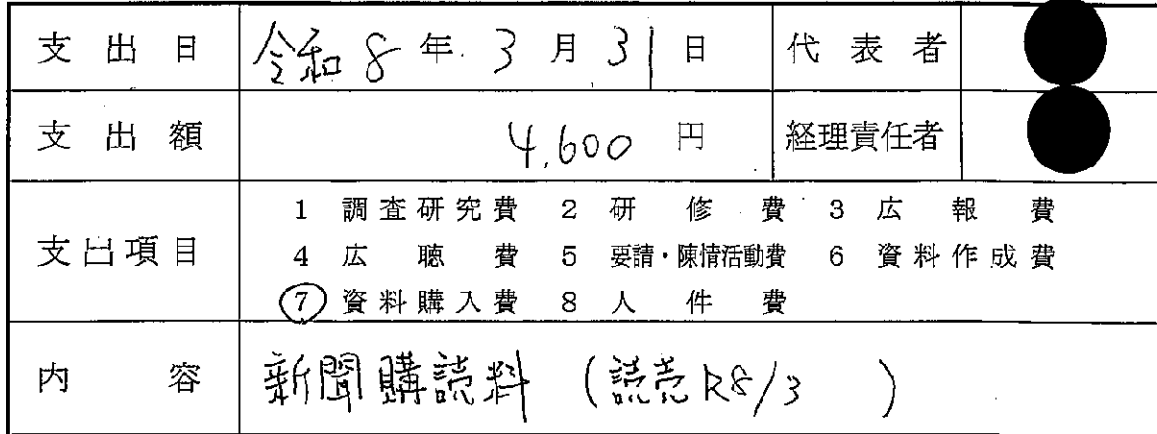 支出日 令和8年3月31日 代表者
支出額 4,600円 経理責任者
支出項目 1 調査研究費 2 研修費 3 広報費
4 広聴費 5 要請・陳情活動費 6 資料作成費
⑦ 資料購入費 8 人件費
内容 新聞購読料 (読売R8/3 )